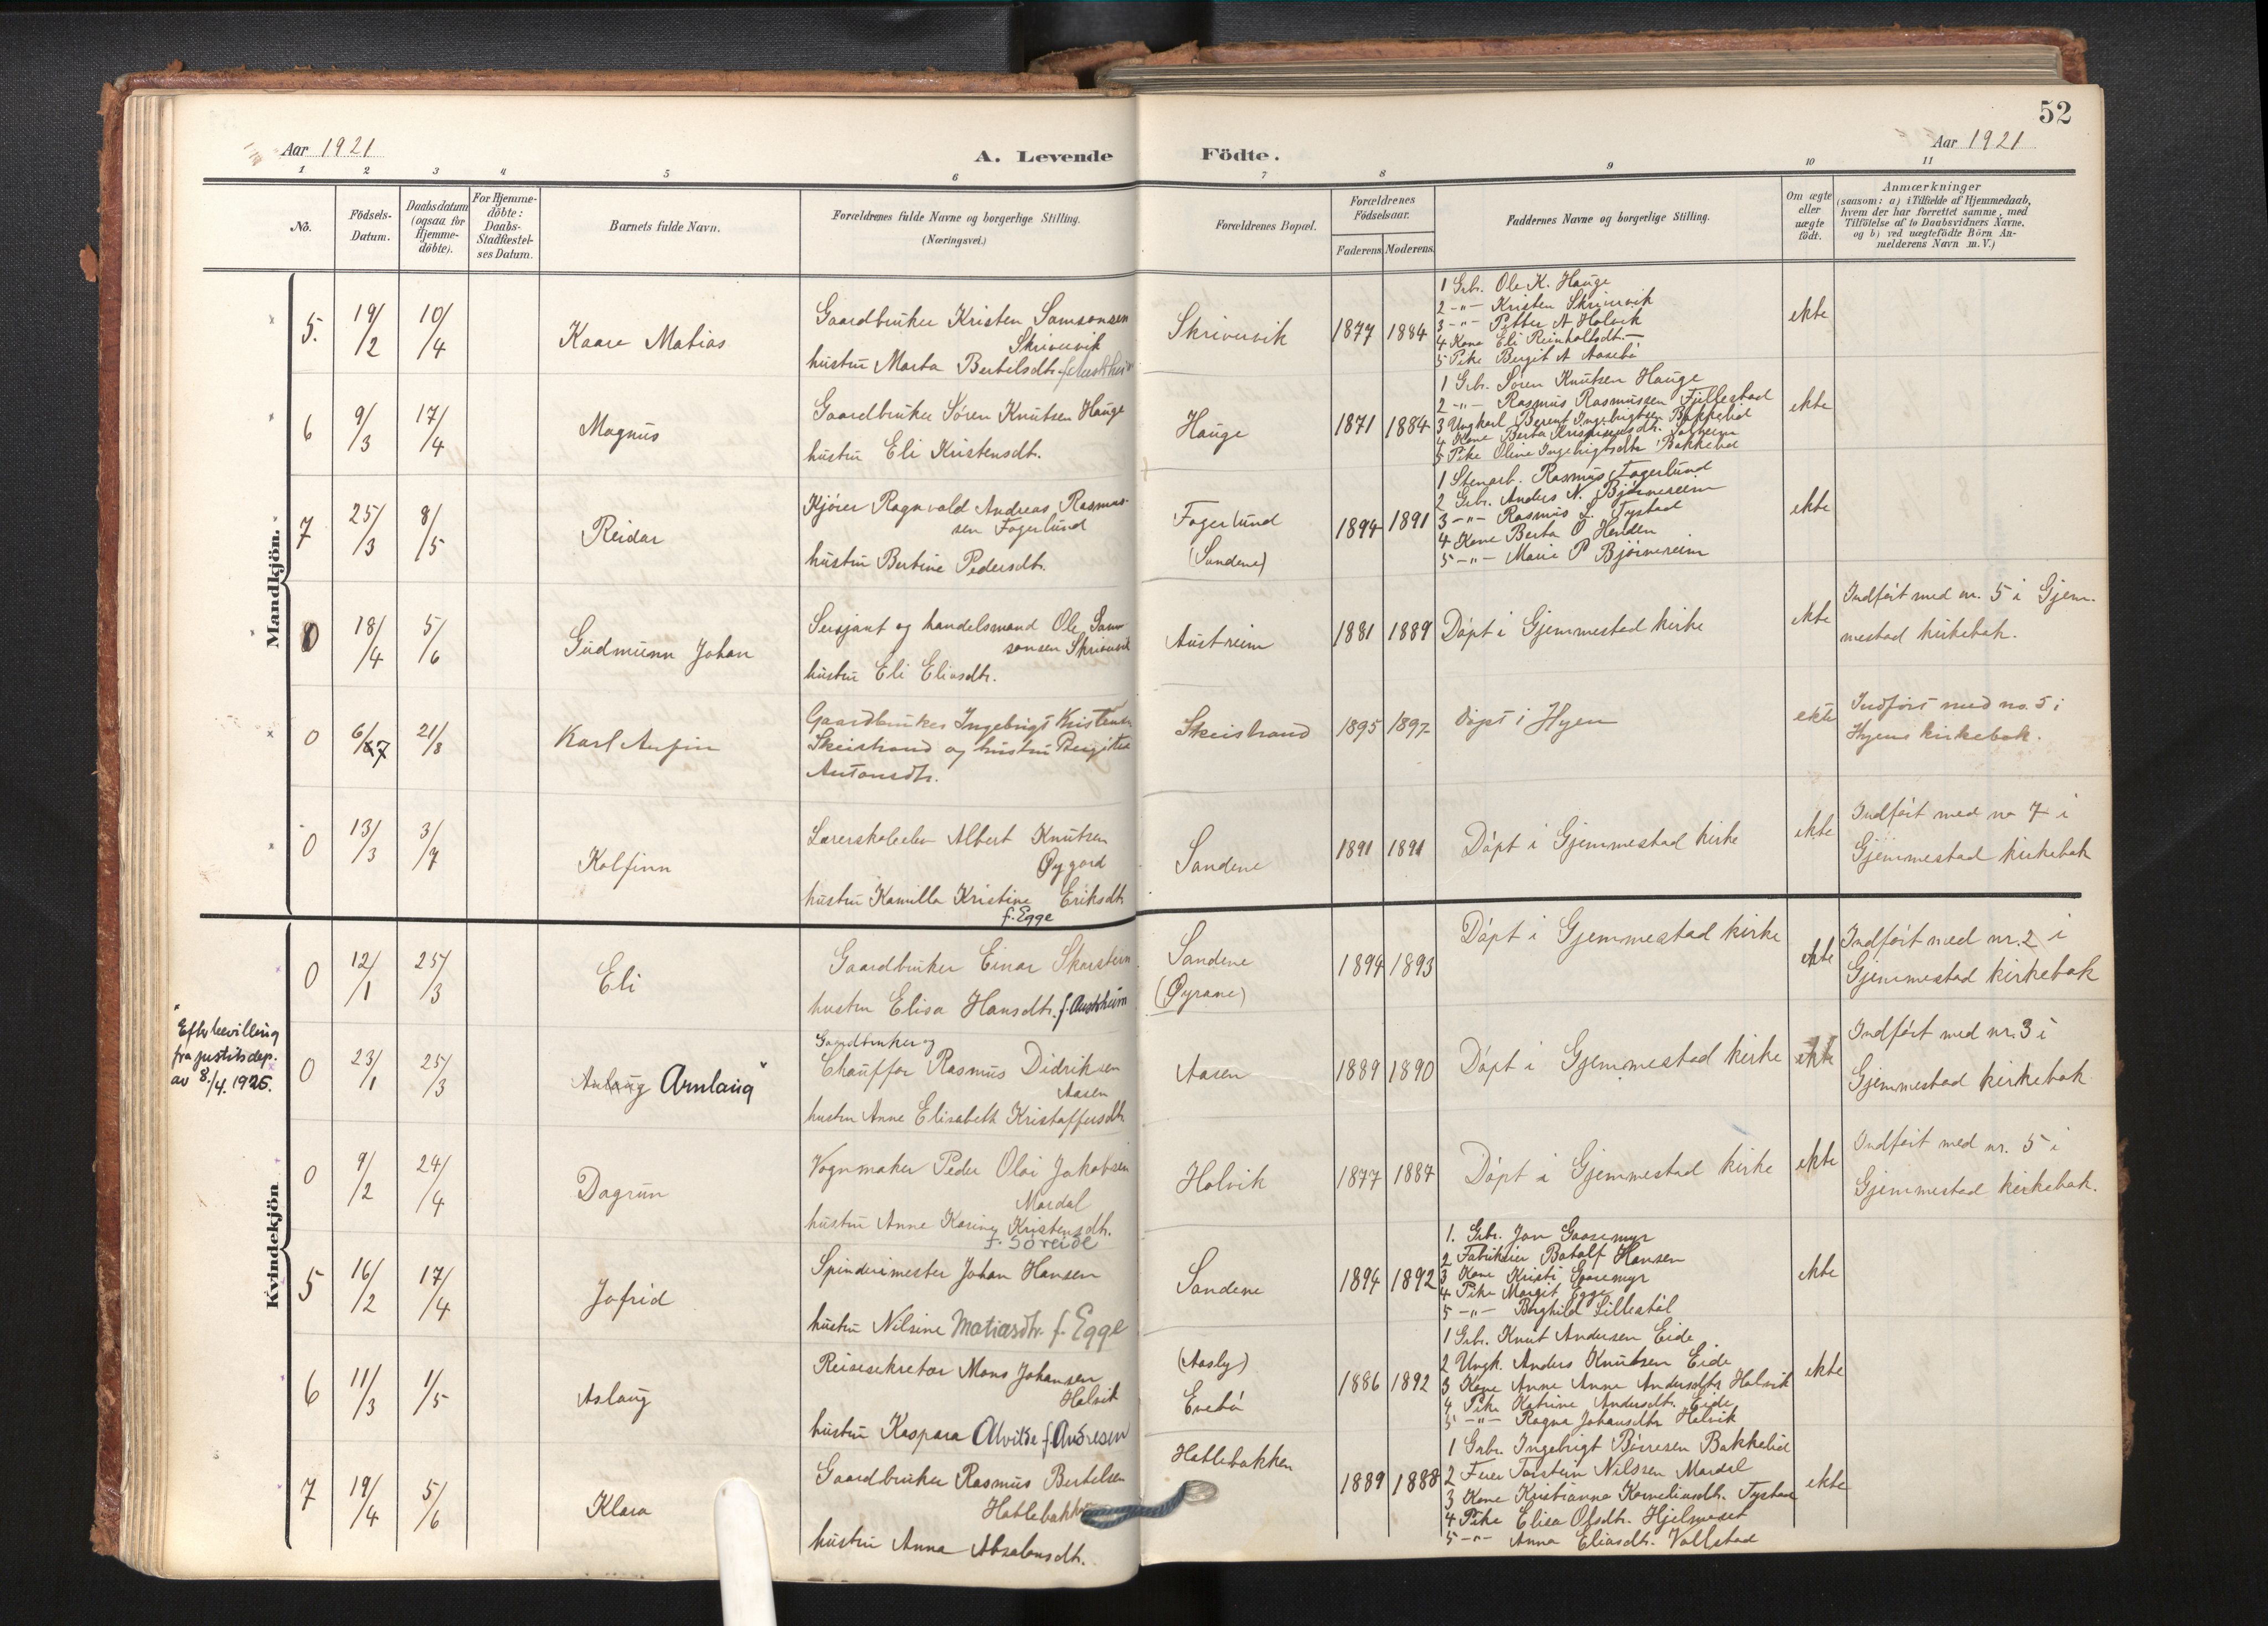 52
Aar 1921
A. Levende Födte.
Aar 1921
1 2 3 4 5 6 7 8 9 10 11
No.
Födsels-
Datum.
Daabsdatum
(ogsaa for
Hjemme-
döbte).
For Hjemme-
döbte:
Daabs-
Stadfæstel-
ses Datum.
Barnets fulde Navn.
Forældrenes fulde Navne og borgerlige Stilling.
(Næringsvei.)
Forældrenes Bopæl.
Forældrenes
Födselsaar.
Faderens Moderens
Faddernes Navne og borgerlige Stilling.
Om ægte
eller
uægte
födt.
Anmærkninger
(saasom: a) i Tilfælde af Hjemmedaab,
hvem der har forrettet samme, med
Tilföielse af to Daabsvidners Navne,
og b) ved uægtefödte Börn An-
melderens Navn m. V.)
Mandkjön.
5. 19/2 10/4
Kaare Matias
Gaardbruker Kristen Samsonsen
Skrivervik
hustru Marta Bertelsdtr.
Skrivervik
1877 1884
1 Grb. Ole K. Hauge
2 -"- Kristen Skrivervik
3 -"- Petter A Holvik
4 Kone Eli Reinholtsdt. —
5 Pike Bergit A Aasebø
ekte
6 9/3 17/4
Magnus
Gaardbruker Søren Knutsen Hauge
hustru Eli Kristensdt.
Hauge
1871 1884
1 Grb. Søren Knutsen Hauge
2 -"- Rasmus Rasmussen Fillestad
3 Ungkarl Berent Ingebrigtsen Bakkelid
4 Kone Berta
5 Pike Oline Ingebrigtsdtr Bakkelid
ekte
7 25/3 8/5
Reidar
Kjører Ragnvald Andreas Rasmus-
sen Fagerlund
hustru Bertine Pedersdt.
Fagerlund
(Sandene)
1894 1891
1 Stenarb. Rasmus Fagerlund
2 Grb. Anders N. Bjørnereim
3 -"- Rasmus L. Tystad
4 Kone Berta O Henden
5 -"- Marie P Bjørnereim
ekte
0 18/4 5/6
Gudmunn Johan
Sersjant og handelsmand Ole Sam-
sonsen Skrivervik
hustru Eli Eliasdtr.
Austreim
1881 1889
Døpt i Gjemmestad kirke
ekte
Indført med nr. 5 i Gjem-
mestad kirkebok.
0 6/7 21/8
Karl Arfin
Gaardbruker Ingebrigt Kristens.
Skeistrand og hustru Bergitte
Antonsdtr.
Skeistrand
1895 1897
døpt i Hyen
ekte
Indført med no. 5 i
Hyens kirkebok.
0 13/3 3/7
Kolfinn
Lærerskoleelev Albert Knutsen
Øygard
hustru Kamilla Kristine Eriksdtr
f. Egge
Sandene
1891 1891
Døpt i Gjemmestad kirke
ekte
Indført med no 7 i
Gjemmestad kirkebok
Kvindekjön
0 12/1 25/3
Eli
Gaardbruker Einar Skarstein
hustru Elisa Hansdtr. f. Austrheim
Sandene
(Øyrane)
1894 1893
Døpt i Gjemmestad kirke
ekte
Indført med nr. 2 i
Gjemmestad kirkebok
"Efter bevilling
fra justitsdep.
av 8./4. 1925.
0 23/1 25/3
Aslaug Arnlaug"
Gaardbruker og
Chauffør Rasmus Didriksen
Aasen
hustru Anne Elisabeth Kristoffersdtr
Aasen
1889 1890
Døpt i Gjemmestad kirke
ekte
Indført med nr. 3 i
Gjemmestad kirkebok
0 9/2 24/4
Dagrun
Vognmaker Peder Olai Jakobsen
Mardal
hustru Anne Karine Kristensdtr.
f. Søreide
Holvik
1877 1884
Døpt i Gjemmestad kirke
ekte
Indført med nr. 5 i
Gjemmestad kirkebok.
5 16/2 17/4
Jofrid
Spinderimester Johan Hansen
hustru Nilsine Matiasdtr. f. Egge
Sandene
1894 1892
1. Grb. Jon Gaasemyr
2 Fabrikeier Botolf Hansen
3 Kone Kristi Gaasemyr
4 Pike Margit Egge
5 -"- Borghild Lillestøl
ekte
6 11/3 1/5
Aslaug
Reisesekretær Mons Johansen
Holvik
hustru Kaspara Alvilde f. Andresen
(Aasly)
Evebø
1886 1892
1 Grb. Knut Andersen Eide
2 Ungk. Anders Knutsen Eide
3 Kone Anne Anne Andersdtr Holvik
4 Pike Katrine Andersdt. Eide
5 -"- Ragna Johansdtr Holvik
ekte
7 19/4 5/6
Klara
Gaardbruker Rasmus Bertelsen
Hatlebakken
hustru Anna Absalonsdtr.
Hatlebakken
1889 1888
1 Grb. Ingebrigt Børresen Bakkelid
2 Torstein Nilssen Mardal
3 Kone Kristianna Korneliusdtr. Tystad
4 Pike Elisa Olsdtr. Hjelmeset
5 -"- Anna Eliasdtr. Vollstad
ekte